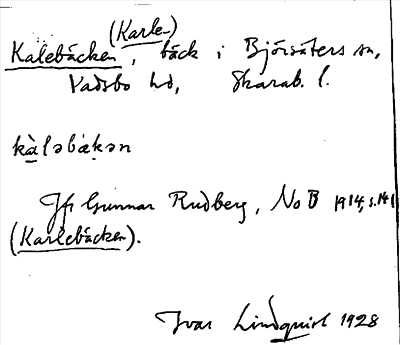 (Karle-)
Kalebäcken, bäck i Björsäters sn,
Vadsbo hd, Skarab. l.
kàləbäkən
Jfr Gunnar Rudberg, NoB 1914, s. 141
(Karlebäcken).
Ivar Lindquist 1928